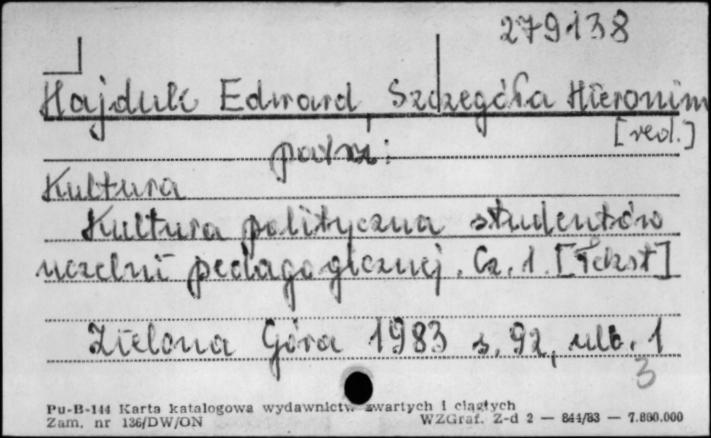 279138
Hajduk Edward, Szczegóła Hieronim
[red.]
patrz:
Kultura
Kultura polityczna studentów
uczelni pedagogicznej. Cz. 1. [Tekst]
Zielona Góra 1983 s. 92, nlb. 1
3
Pu-B-144 Karta katalogowa wydawnictw zwartych i ciągłych
Zam. nr 136/DW/ON WZGraf. Z-d 2 — 844/83 — 7.800.000